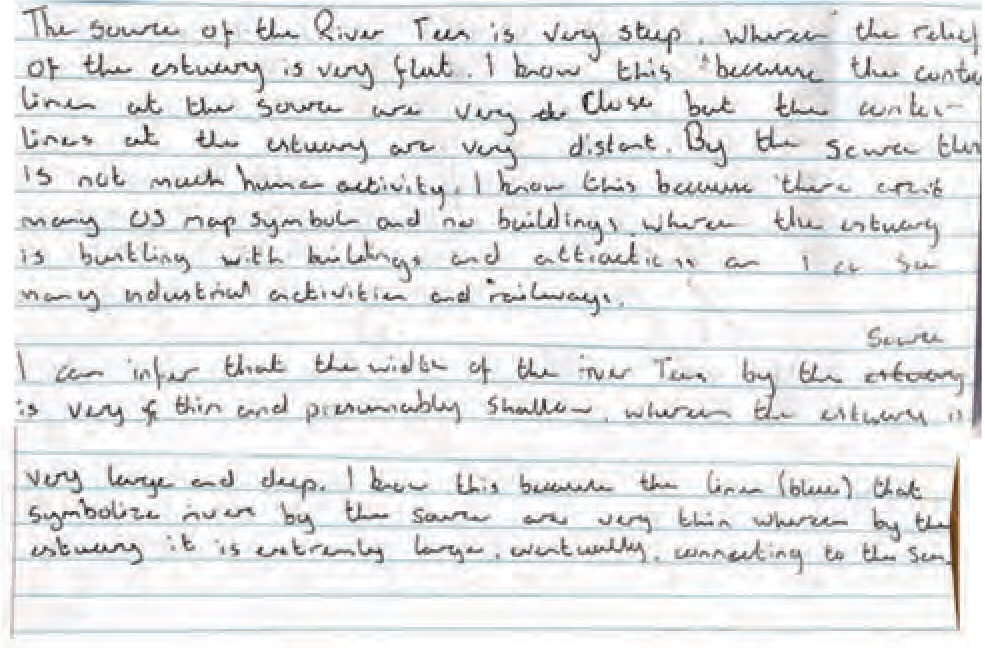 The source of the River Tees is very steep, wheras the relief
of the estuary is very flat. I know this because the conto
lines at the source are very close but the conter
lines at the estuary are very distant. By the source ther
is not much human activity. I know this because there arent
many OS map symbols and no buildings, wheras the estuary
is bustling with buildings and attractions as I can see
many industrial activities and railways.
source
I can infer that the width of the river Tees by the estuary
is very thin and presumably shallow, wheras the estuary is
very large and deep. I know this because the lines (blue) that
symbolize rivers by the source are very thin wheras by the
estuary it is extremly large, eventually, connecting to the sea.